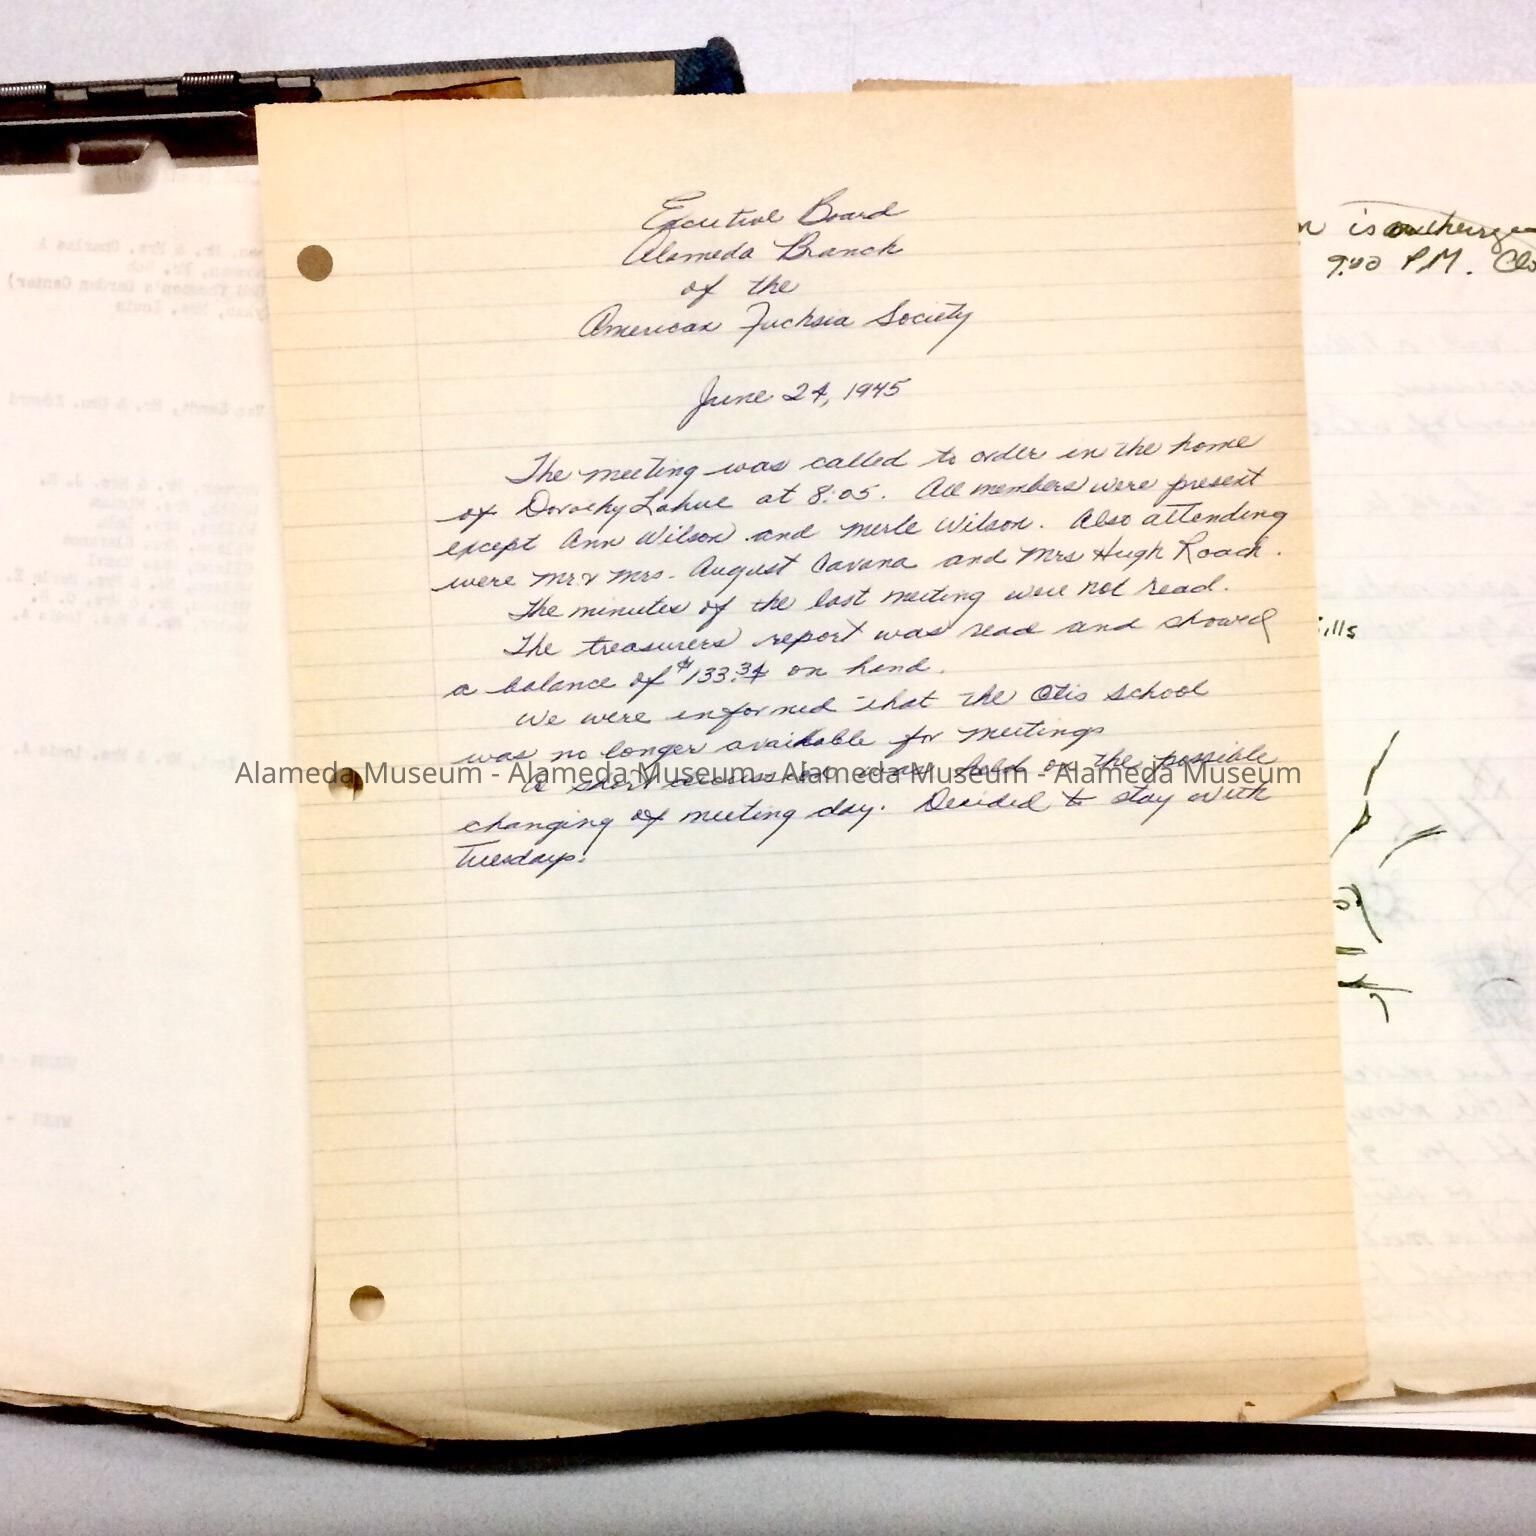 Executive Board
Alameda Branch
of the
American Fuchsia Society
June 24, 1945
The meeting was called to order in the home
of Dorothy Lahue at 8:05. All members were present
except Ann Wilson and Merle Wilson. Also attending
were Mr & Mrs. August Cavana and Mrs Hugh Roach.
The minutes of the last meeting were not read.
The treasurers report was read and showed
a balance of $133.34 on hand.
We were informed that the Otis School
was no longer available for meetings
A short discussion was held on the possible
Alameda Museum - Alameda Museum - Alameda Museum - Alameda Museum
changing of meeting day. Decided to stay with
Tuesdays.
is
9:00 P.M.